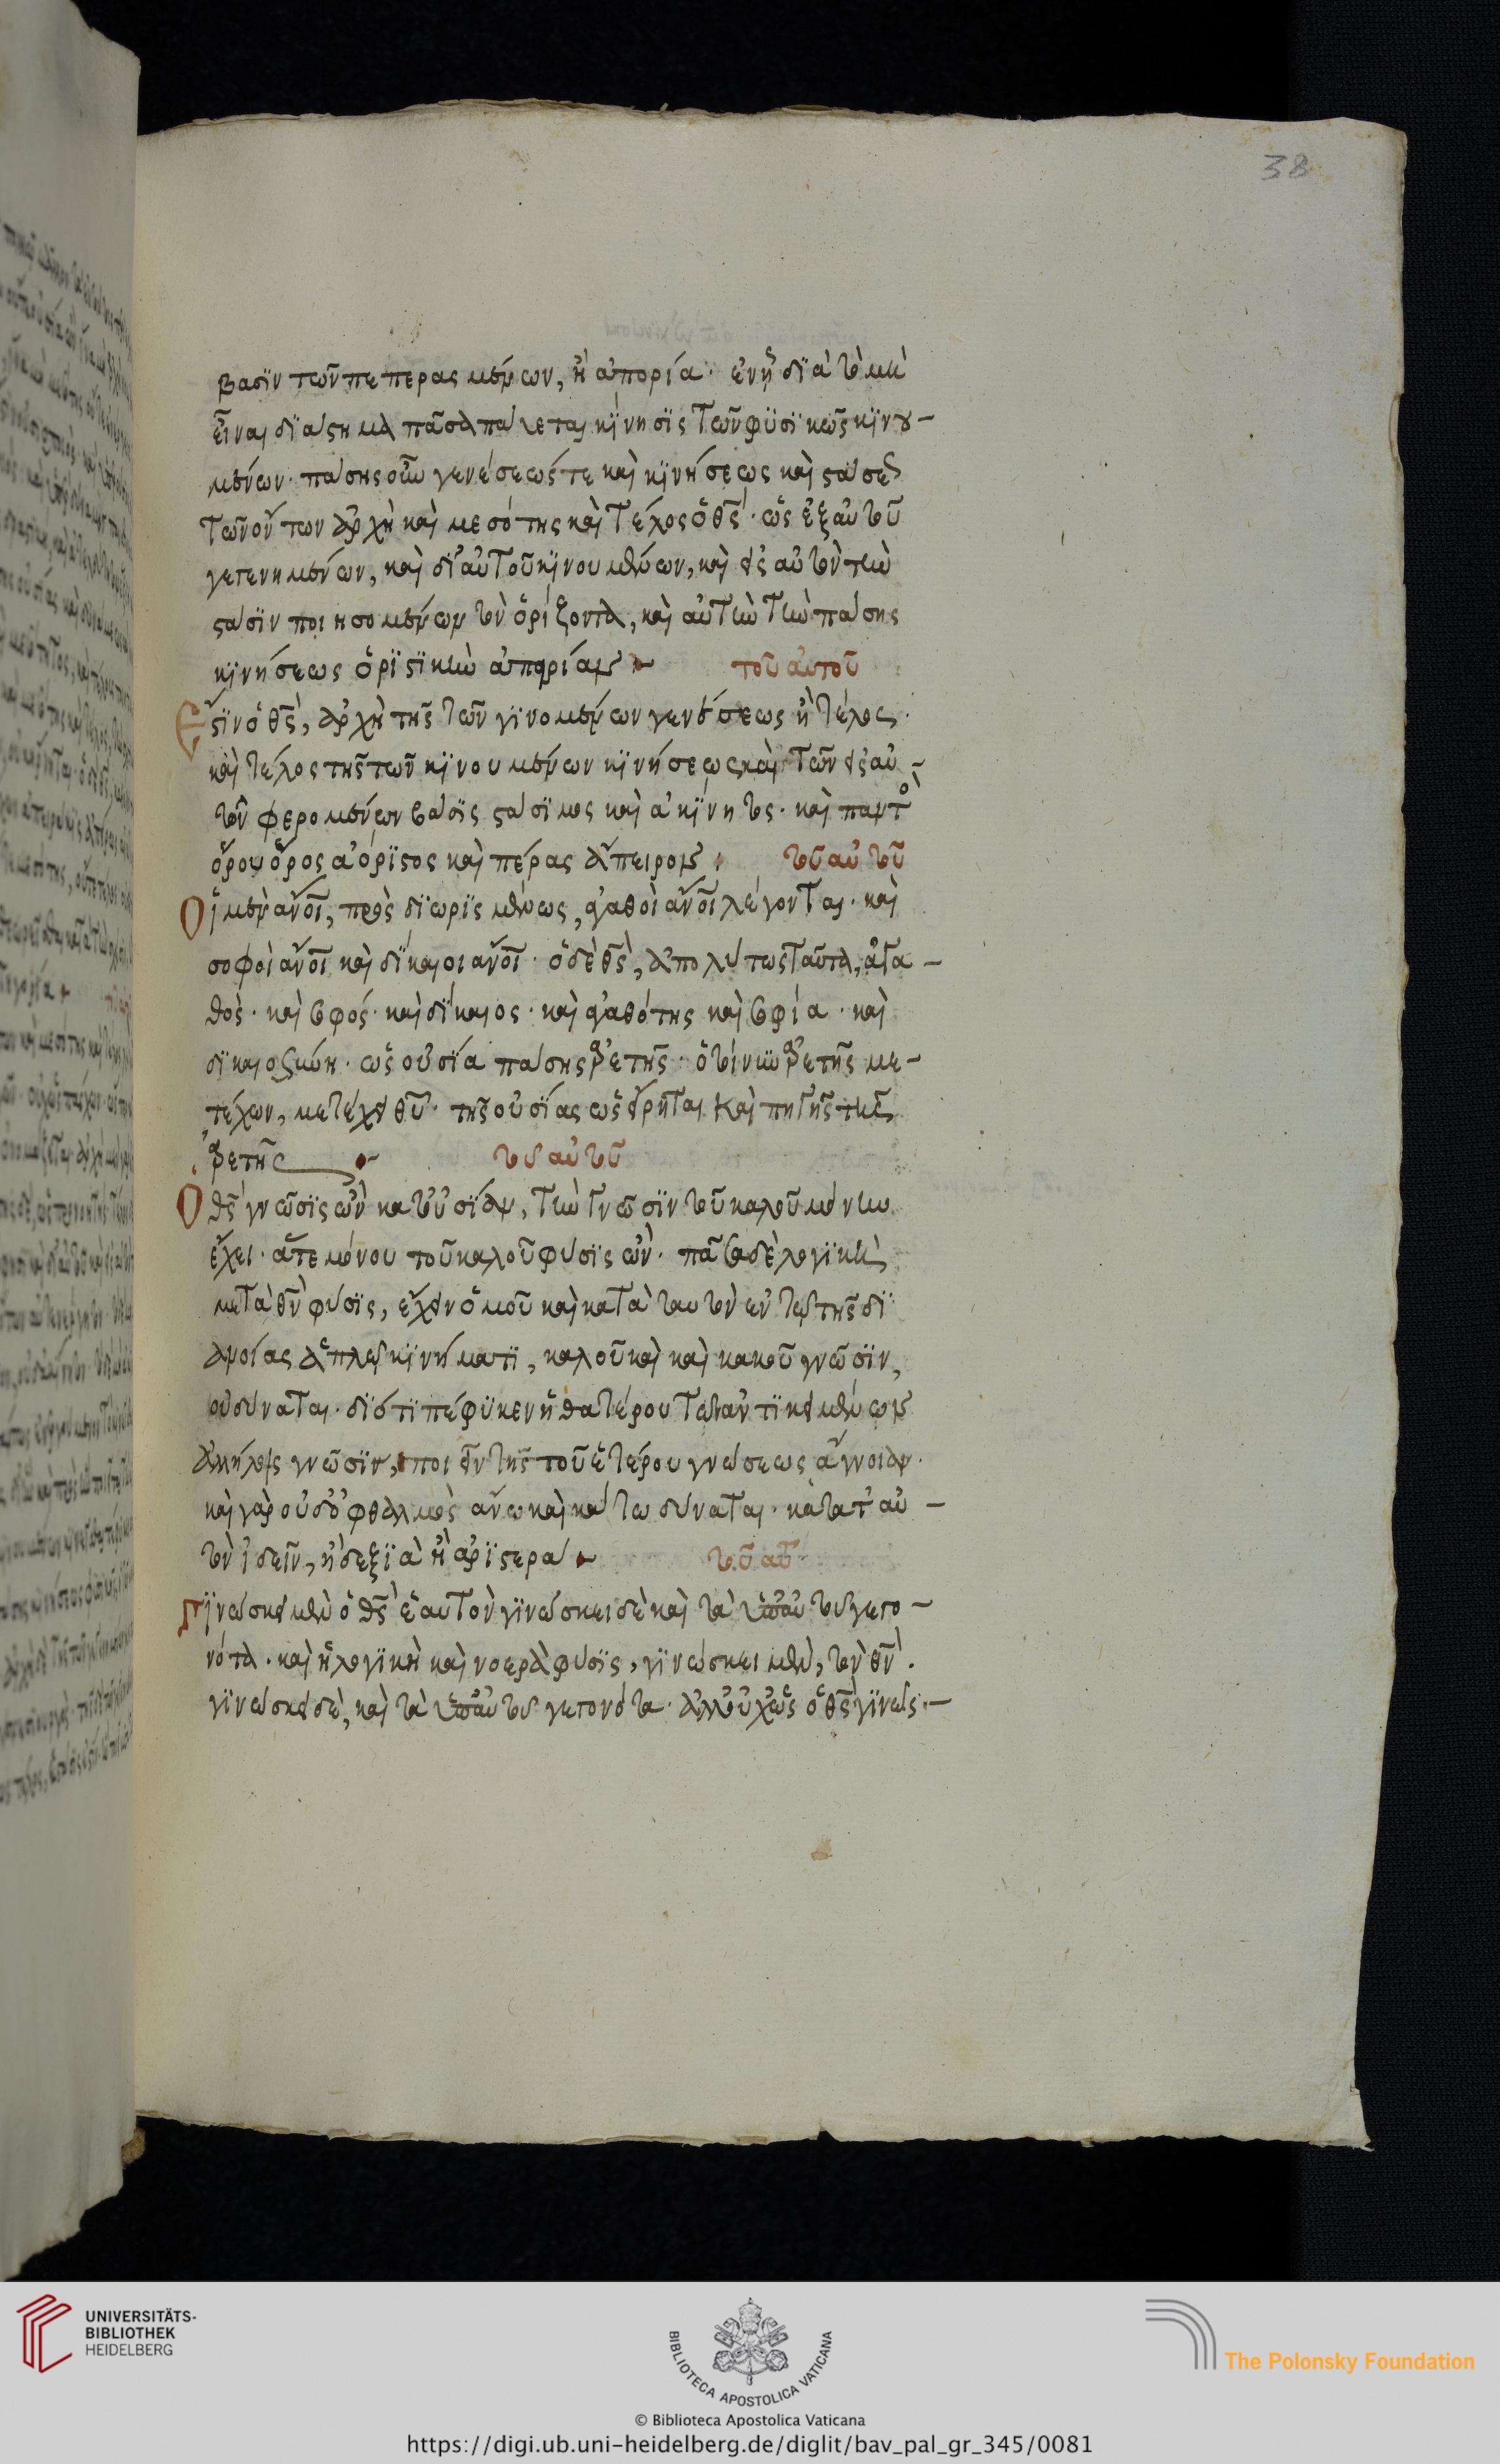 38
βασϊν τῶν πεπερασμένων, ἡ ἀπορία. ἐν ᾗ διὰ τὸ μὴ
εἶναι διάστημα πᾶσα παύεται κίνησις τῶν φυσικῶς κινου-
μένων. πάσης οὖν γενέσεώς τε καὶ κινήσεως καὶ στάσε
τῶν ὄντων ἀρχὴ καὶ μεσότης καὶ τέλος ὁ θς. ὡς ἐξ αὐτοῦ
γεγενημένων, καὶ δι αὐτοῦ κινουμένων, καὶ εἰς αὐτὸν τὴν
στάσιν ποιησομένων τὸν ὁρίζοντα, καὶ αὐτὴν τὴν πάσης
κινήσεως ὁριστικὴν ἀπορίαν
τοῦ αὐτοῦ
Ἔστιν ὁ θς, ἀρχὴ τῆς τῶν γινομένων γενέσεως ἢ τέλος.
καὶ τέλος τῆς τῶν κινουμένων κινήσεως καὶ τῶν εἰς αὐ-
τὸν φερομένων βάσις στάσιμος καὶ ἀκίνητος. καὶ παντὸ
ὅρου ὅρος ἀόριστος καὶ πέρας ἄπειρον
τοῦ αὐτοῦ
Οἱ μὲν ἄνοι, πρὸς διωρισμένως, ἀγαθοὶ ἄνοι λέγονται. καὶ
σοφοὶ ἄνοι καὶ δίκαιοι ἄνοι. ὁ δὲ θς, ἀπολύτως ταῦτα, ἀγα-
θὸς. καὶ σοφός. καὶ δίκαιος. καὶ ἀγαθότης καὶ σοφία. καὶ
δικαιοσύνη. ὡς οὐσία πάσης ἀρετῆς. ὁ τίνων ἀρετῆς με-
τέχων, μετέχει θυ. τῆς οὐσίας ὡς εἴρηται καὶ πηγῆς τῆς
ἀρετῆς
τοῦ αὐτοῦ
Ὁ θς γνῶσις ὢν κατ οὐσίαν, τὴν γνῶσιν τοῦ καλοῦ μόνην
ἔχει. ἅτε μόνου τοῦ καλοῦ φύσις ὤν. πᾶσα δὲ λογικὴ
μετὰ θν φύσις, ἔχειν ὁμοῦ καὶ κατὰ ταυτὸν ἐν τῷ τῆς δι
ανοίας ἁπλῷ κινήματι, καλοῦ καὶ καὶ κακοῦ γνῶσιν,
οὐ δύναται. διότι πέφυκεν ἡ θατέρου τῶν ἀντικειμένων
ἀλλήλοις γνῶσιν, ποιεῖν τῆς τοῦ ἑτέρου γνώσεως ἄγνοιαν.
καὶ γὰρ οὐδ ὀφθαλμὸς ἄνω καὶ κάτω δύναται. κατατ αὐ-
τὸν ἰδεῖν, ἢ δεξιὰ ἢ ἀριστερά
τοῦ αυτ
Γινώσκει μὲν ὁ θς ἑαυτὸν γινώσκει δὲ καὶ τὰ ὑπ αὐτοῦ γεγο-
νότα. καὶ ἡ λογικὴ καὶ νοερὰ φύσις, γινώσκει μὲν, τὸν θν.
γινώσκει δὲ, καὶ τὰ ὑπ αὐτοῦ γεγονότα. ἀλλ οὐχ ὡς ὁ θς γινώσ-
UNIVERSITÄTS-
BIBLIOTHEK
HEIDELBERG
BIBLIOTECA APOSTOLICA VATICANA
The Polonsky Foundation
© Biblioteca Apostolica Vaticana
https://digi.ub.uni-heidelberg.de/diglit/bav_pal_gr_345/0081